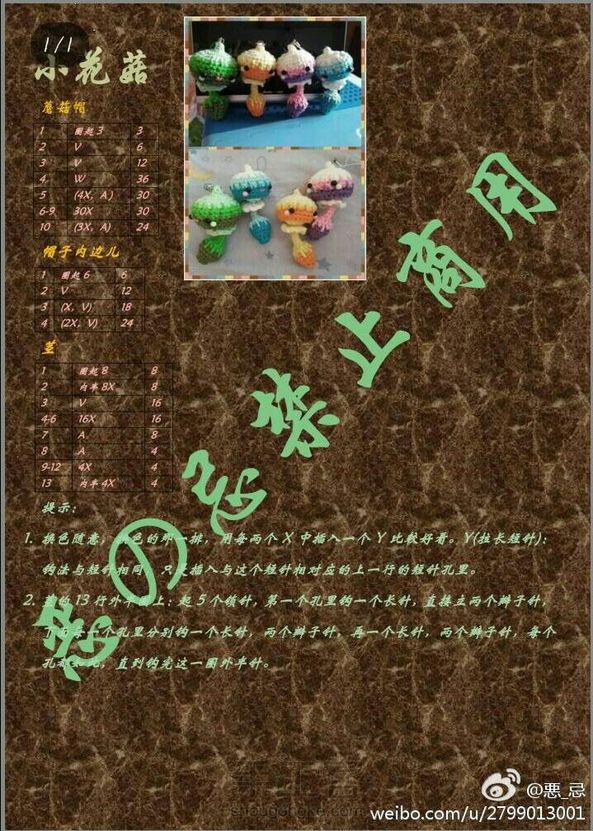 1/1
小花菇
蘑菇帽
1 圈起3 3
2 V 6
3 V 12
4 W 36
5 (4X, A) 30
6-9 30X 30
10 (3X, A) 24
帽子内边儿
1 圈起6 6
2 V 12
3 (X, V) 18
4 (2X, V) 24
茎
1 圈起8 8
2 内半8X 8
3 V 16
4-6 16X 16
7 A 8
8 A 4
9-12 4X 4
13 内半4X 4
提示：
1. 换色随意，换色的那一排，用每两个X中插入一个Y比较好看。Y(拉长短针)：
钩法与短针相同，只是插入与这个短针相对应的上一行的短针孔里。
2. 茎的13行外半针上：起5个锁针，第一个孔里钩一个长针，直接立两个辫子针，
下面每一个孔里分别钩一个长针，两个辫子针，再一个长针，两个辫子针，每个
孔都如此，直到钩完这一圈外半针。
恶の忌禁止商用
@恶_忌
weibo.com/u/2799013001